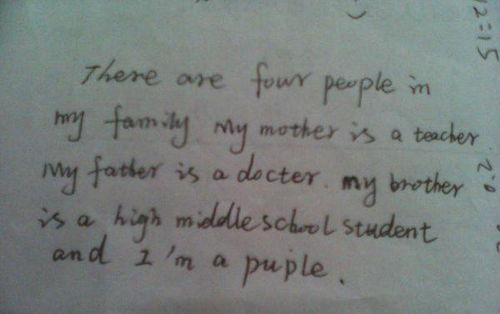 There are four people in
my family. My mother is a teacher
My father is a docter. my brother
is a high middle school student
and I'm a puple.
12:15